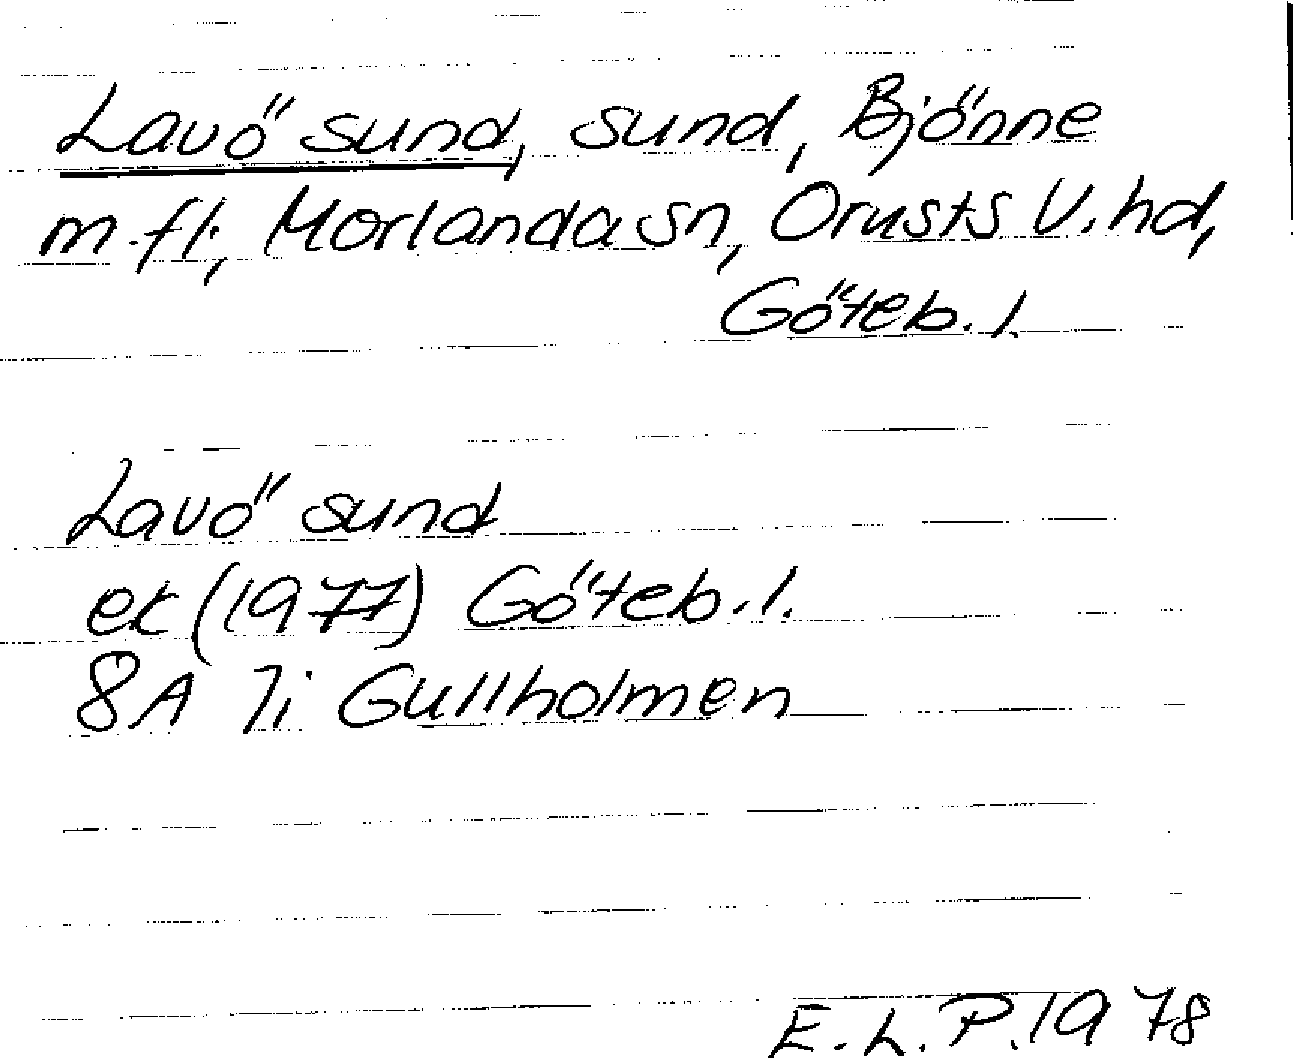 Lavö sund, sund, Bjönne
m.fl., Morlanda sn, Orusts V. hd,
Göteb. l.
Lavö sund
ek (1977) Göteb. l.
8A 7i Gullholmen
E. L. P. 1978